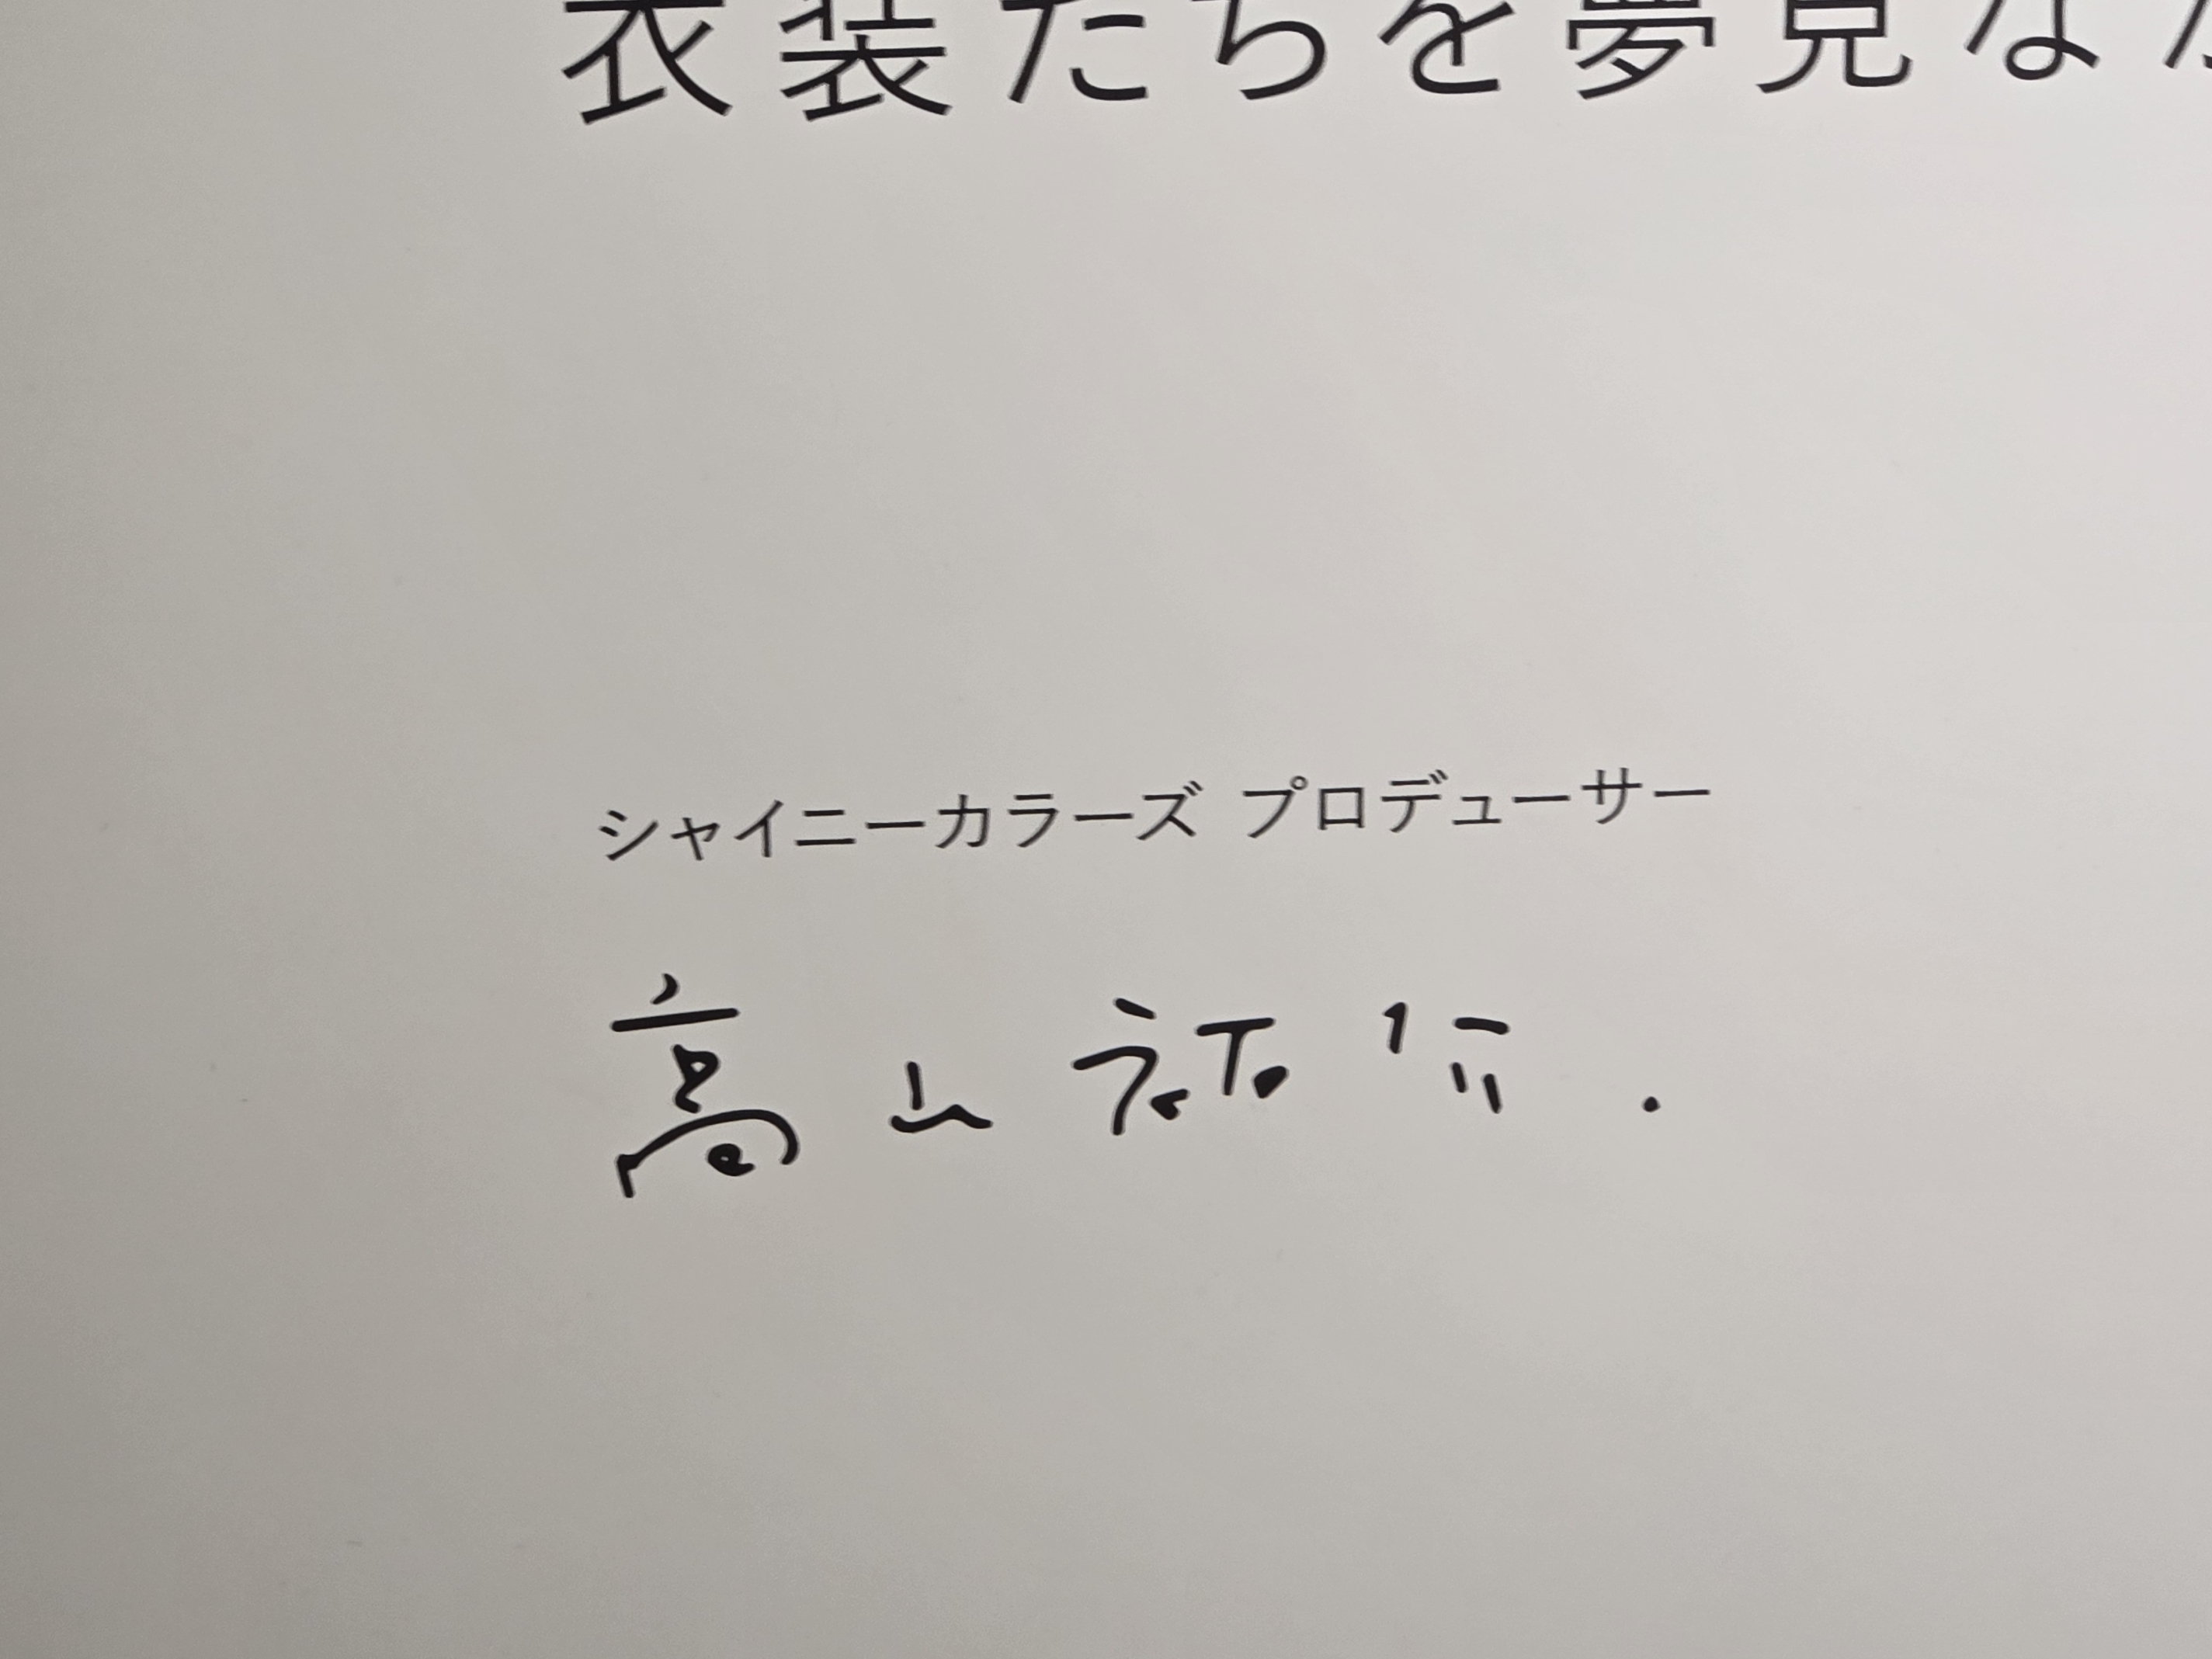 衣装たちを夢見な
シャイニーカラーズ プロデューサー
高山祐介.